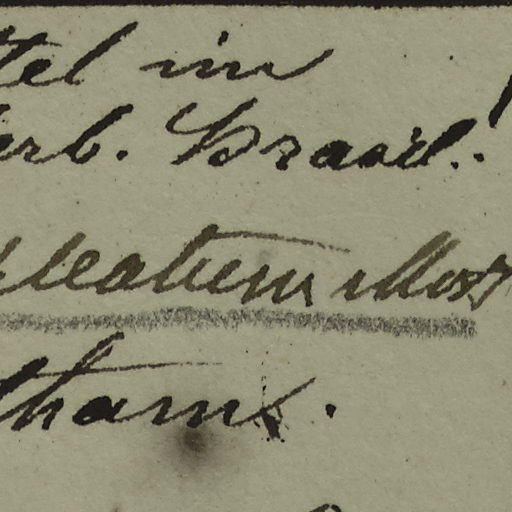 tel in
erb. Brasil.!
leatum Mor
tham.